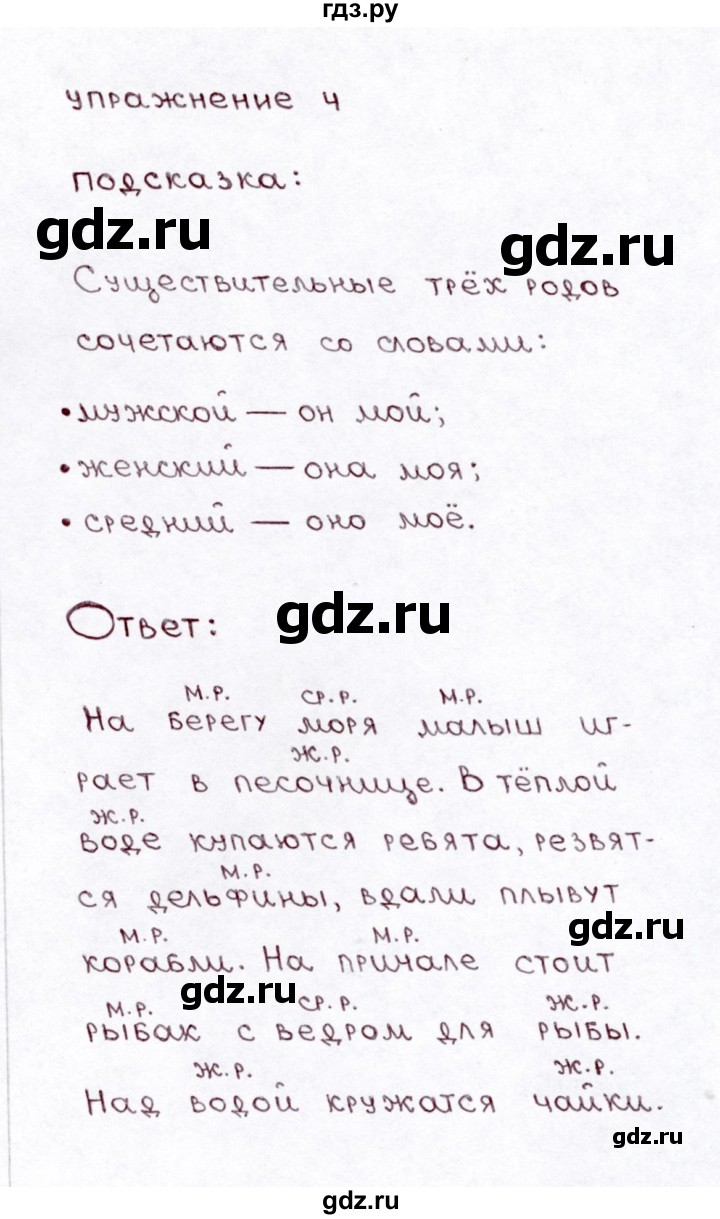 гдз.ру
упражнение 4
подсказка:
gdz.ru
gdz.ru
Существительные трёх родов
сочетаются со словами:
•мужской — он мой;
•женский — она моя;
• средний — оно моё.
gdz.ru
Ответ:
м.р. ср.р. м.р.
На берегу моря малыш иг-
ж.р.
рает в песочнице. В тёплой
ж.р.
воде купаются ребята, резвят-
м.р.
ся дельфины, вдали плывут
gdz.ru
м.р. м.р.
корабли. На причале стоит
gdz.ru
м.р. ср.р. ж.р.
рыбак с ведром для рыбы.
ж.р. ж.р.
Над водой кружатся чайки.
gdz.ru
gdz.ru